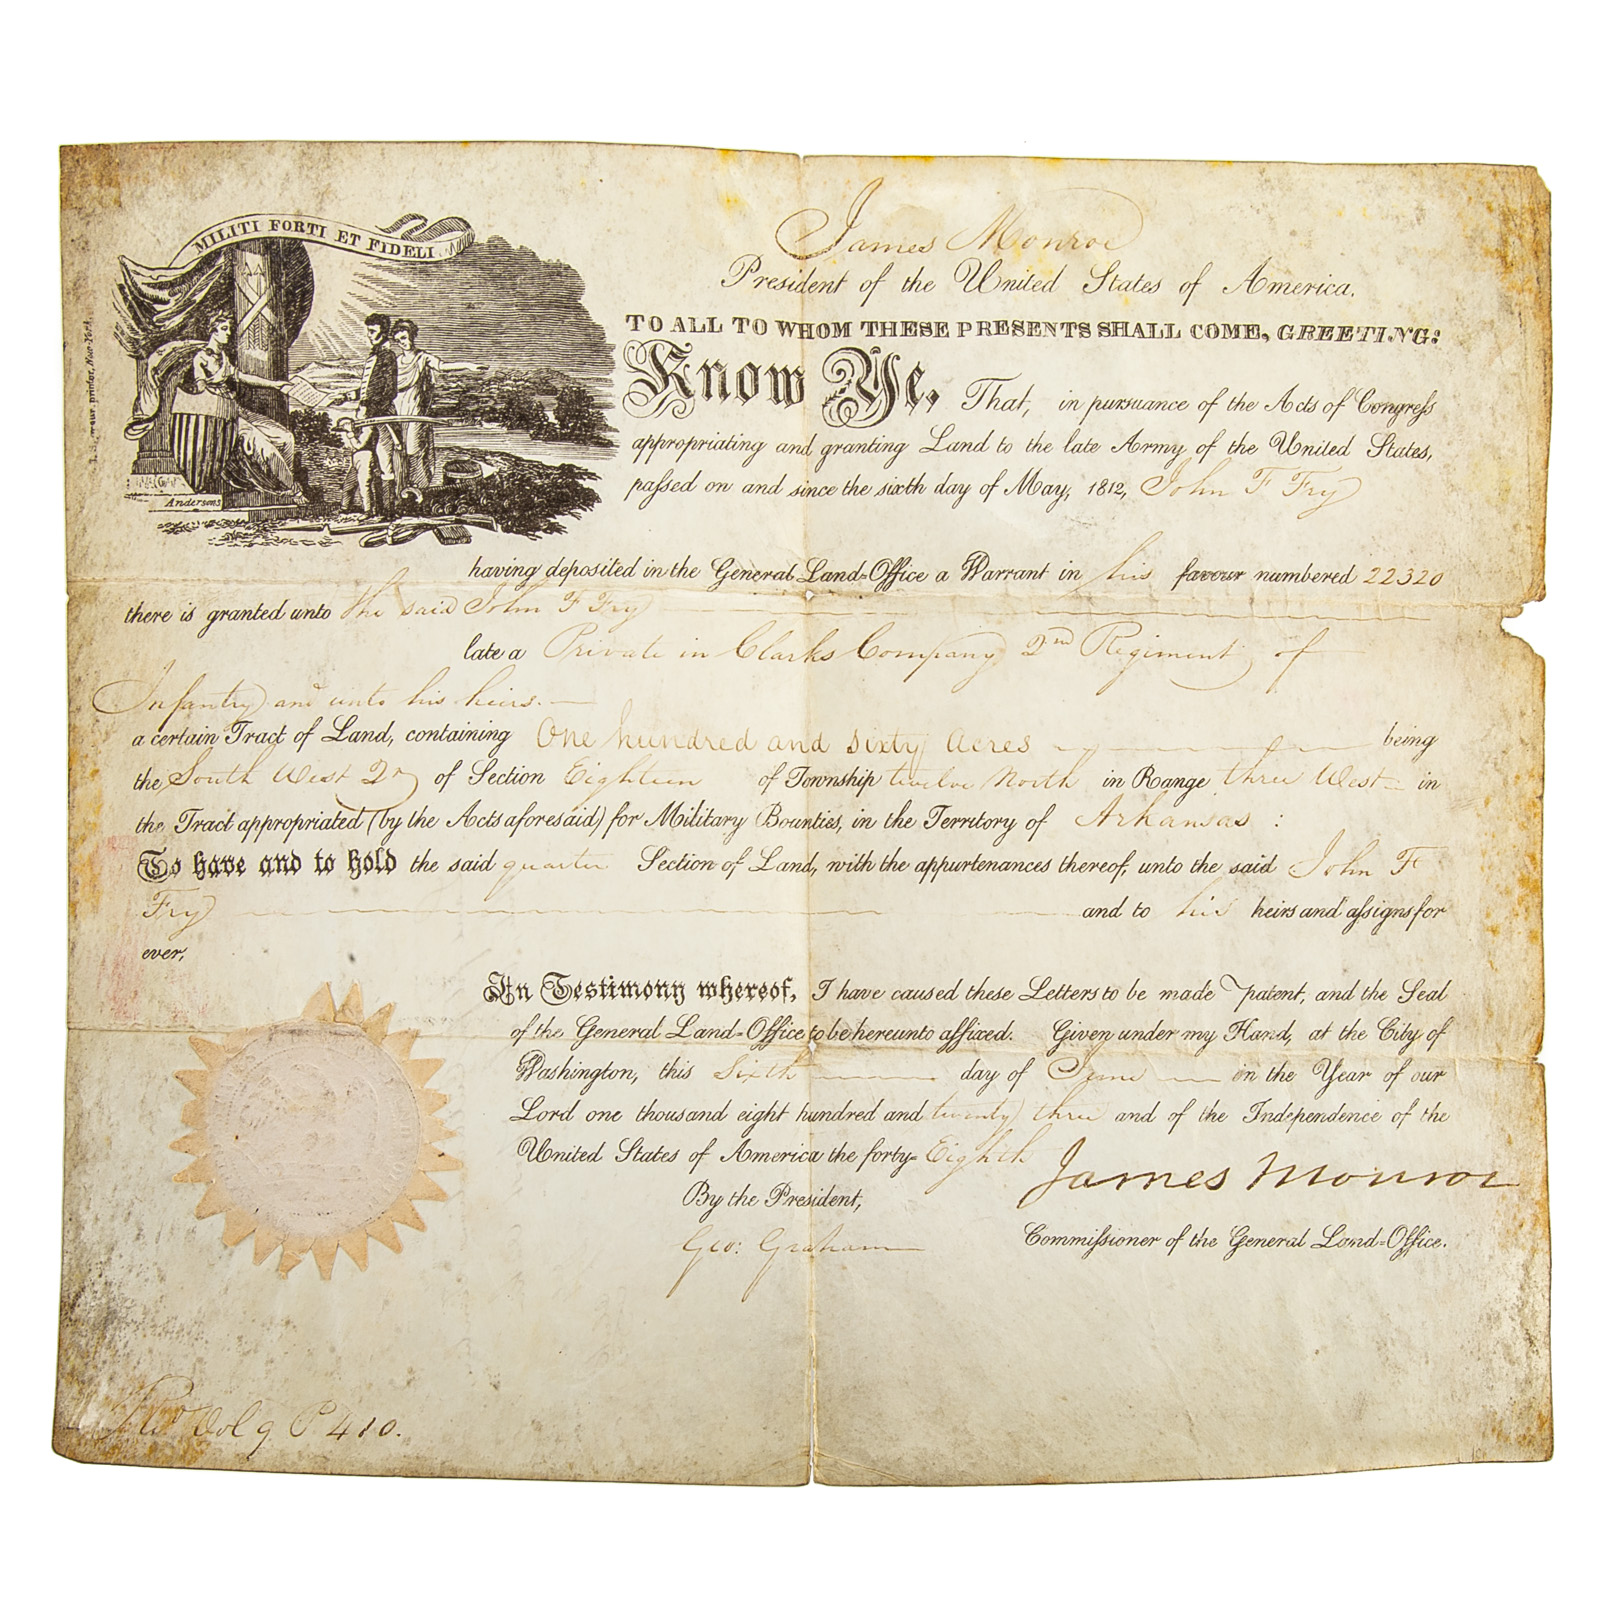 MILITI FORTI ET FIDELI
Andersons
James Monroe
President of the United States of America.
TO ALL TO WHOM THESE PRESENTS SHALL COME, GREETING:
Know Ye, That, in pursuance of the Acts of Congress
appropriating and granting Land to the late Army of the United States,
passed on and since the sixth day of May, 1812, John F Fry
having deposited in the General Land-Office a Warrant in his favour numbered 22320
there is granted unto the said John F Fry
late a Private in Clarks Company 2nd Regiment of
Infantry and unto his heirs.
a certain Tract of Land, containing One hundred and sixty acres being
the South West Qr of Section Eighteen of Township twelve North in Range three West in
the Tract appropriated (by the Acts aforesaid) for Military Bounties, in the Territory of Arkansas :
To have and to hold the said quarter Section of Land, with the appurtenances thereof, unto the said John F
Fry and to his heirs and assigns for
ever,
In Testimony whereof, I have caused these Letters to be made patent, and the Seal
of the General Land-Office to be hereunto affixed. Given under my Hand, at the City of
Washington, this Sixth day of June in the Year of our
Lord one thousand eight hundred and twenty three and of the Independence of the
United States of America the forty-Eighth
James Monroe
By the President,
Geo: Graham
Commissioner of the General Land-Office.
Vol 9 P 410.